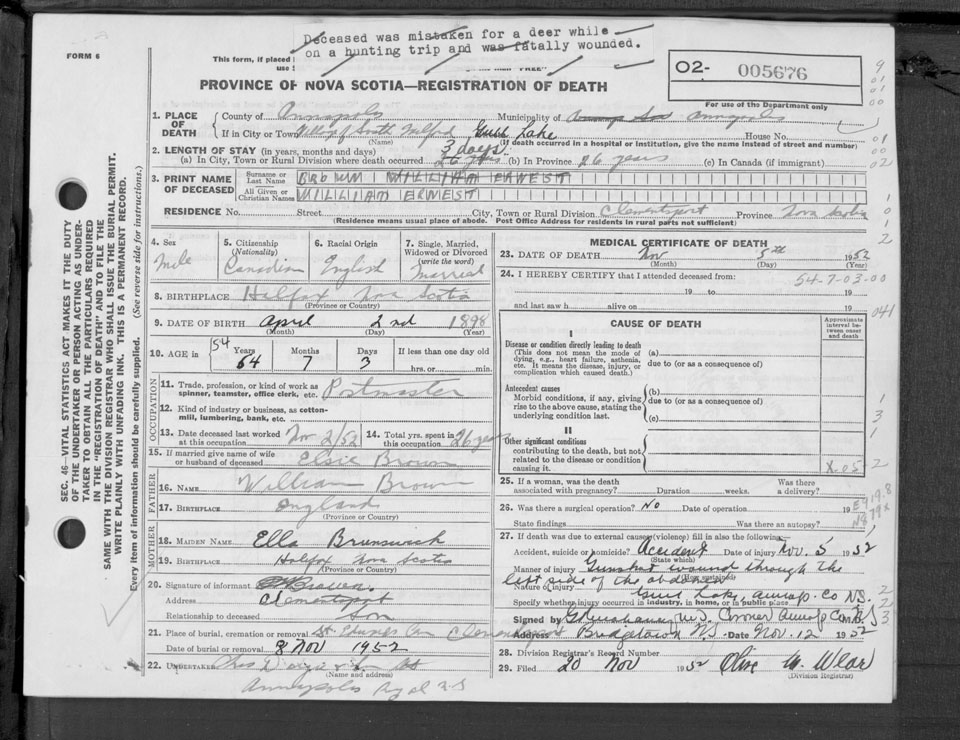 Deceased was mistaken for a deer while
on a hunting trip and was fatally wounded.
FORM 6
This form, if placed
use
FREE"
O2- 005676
For use of the Department only
PROVINCE OF NOVA SCOTIA—REGISTRATION OF DEATH
1. PLACE OF DEATH
County of Annapolis Municipality of Annapolis
If in City or Town Village of South Milford Gulf Lake House No.
(Name) (If death occurred in a hospital or institution, give the name instead of street and number)
2. LENGTH OF STAY (in years, months and days) 3 days
(a) In City, Town or Rural Division where death occurred 26 yrs (b) In Province 26 years (c) In Canada (if immigrant)
3. PRINT NAME OF DECEASED
Surname or Last Name BROWN WILLIAM ERNEST
All Given or Christian Names WILLIAM ERNEST
RESIDENCE No. Street City, Town or Rural Division Clementsport Province Nova Scotia
(Residence means usual place of abode. Post Office Address for residents in rural parts not sufficient)
SEC. 46—VITAL STATISTICS ACT MAKES IT THE DUTY
OF THE UNDERTAKER OR PERSON ACTING AS UNDER-
TAKER TO OBTAIN ALL THE PARTICULARS REQUIRED
IN THE "REGISTRATION OF DEATH" AND TO FILE THE
SAME WITH THE DIVISION REGISTRAR WHO SHALL ISSUE THE BURIAL PERMIT.
WRITE PLAINLY WITH UNFADING INK. THIS IS A PERMANENT RECORD.
Every item of information should be carefully supplied. (See reverse side for instructions.)
4. Sex Male
5. Citizenship (Nationality) Canadian
6. Racial Origin English
7. Single, Married, Widowed or Divorced (write the word) Married
8. BIRTHPLACE Halifax Nova Scotia
(Province or Country)
9. DATE OF BIRTH April 2nd 1898
(Month) (Day) (Year)
10. AGE in 54 Years 64 Months 7 Days 3 If less than one day old
hrs. or min.
OCCUPATION
11. Trade, profession, or kind of work as
spinner, teamster, office clerk, etc. Postmaster
12. Kind of industry or business, as cotton-
mill, lumbering, bank, etc.
13. Date deceased last worked at this occupation Nov 2/52 14. Total yrs. spent in this occupation 26 years
15. If married give name of wife
or husband of deceased Elsie Brown
FATHER
16. NAME William Brown
17. BIRTHPLACE England
(Province or Country)
MOTHER
18. MAIDEN NAME Ella Brunswick
19. BIRTHPLACE Halifax Nova Scotia
(Province or Country)
20. Signature of informant Brown
Address Clementsport
Relationship to deceased Son
21. Place of burial, cremation or removal St. Edwards Cem Clementsport
Date of burial or removal 8 Nov 1952
22. UNDERTAKER
(Name and address)
Annapolis Royal N.S
MEDICAL CERTIFICATE OF DEATH
23. DATE OF DEATH Nov 5th 1952
(Month) (Day) (Year)
24. I HEREBY CERTIFY that I attended deceased from:
54-7-03-00
19 to 19
and last saw h alive on 19
041
CAUSE OF DEATH
Approximate interval between onset and death
I
Disease or condition directly leading to death
(This does not mean the mode of dying, e.g., heart failure, asthenia, etc. It means the disease, injury, or complication which caused death.)
(a)
due to (or as a consequence of)
Antecedent causes
Morbid conditions, if any, giving rise to the above cause, stating the underlying condition last.
(b)
due to (or as a consequence of)
(c)
II
Other significant conditions
contributing to the death, but not related to the disease or condition causing it.
X.05 2
25. If a woman, was the death associated with pregnancy? Duration weeks. Was there a delivery?
26. Was there a surgical operation? No Date of operation 19
State findings Was there an autopsy?
E919.8
N879x
27. If death was due to external causes (violence) fill in also the following:
Accident, suicide or homicide? Accident Date of injury Nov. 5 1952
(State which)
Manner of injury Gunshot wound through the
left side of the abdomen
(How sustained)
Nature of injury
Specify whether injury occurred in industry, in home, or in public place Gulf Lake, Annap. Co NS.
Signed by M.D. Coroner Annap Co N.S
Address Bridgetown N.S. Date Nov. 12 1952
28. Division Registrar's Record Number
29. Filed 20 Nov 1952 Olive M. Wear
(Division Registrar)